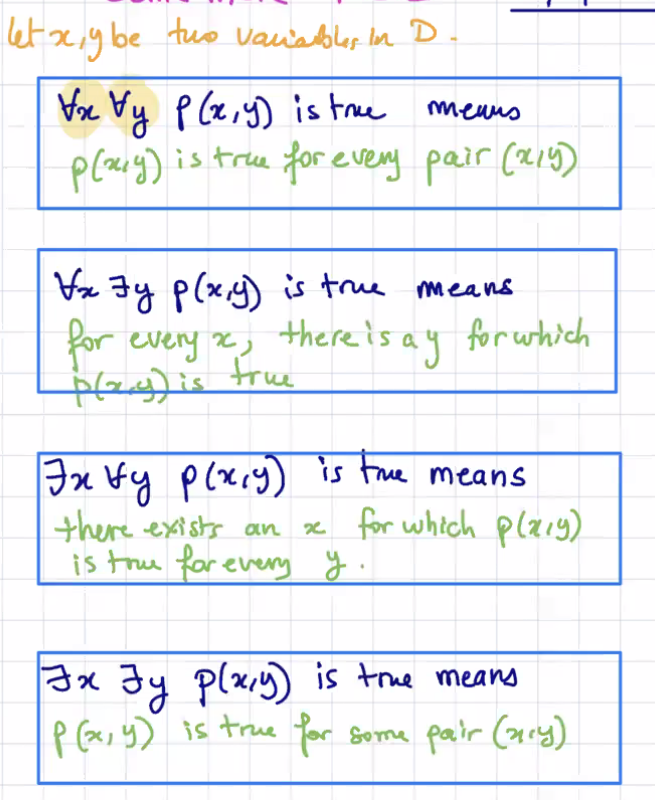 let x, y be two variables in D.
∀x ∀y p(x,y) is true means
p(x,y) is true for every pair (x,y)
∀x ∃y p(x,y) is true means
for every x, there is a y for which
p(x,y) is true
∃x ∀y p(x,y) is true means
there exists an x for which p(x,y)
is true for every y.
∃x ∃y p(x,y) is true means
p(x,y) is true for some pair (x,y)